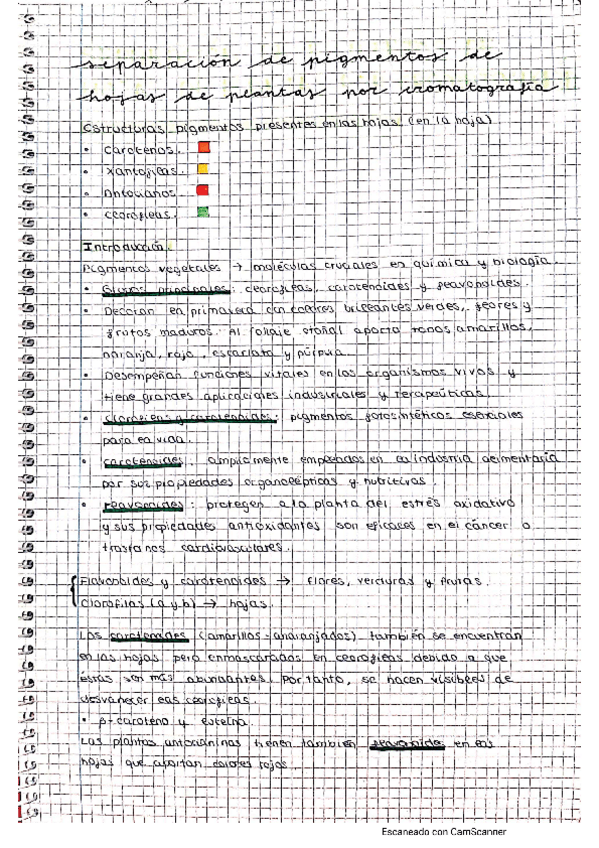 separación de pigmentos de
hojas de plantas por cromatografía
Estructuras pigmentos presentes en las hojas (en la hoja)
• Carotenos.
• Xantofilas.
• Antocianos.
• clorofilas.
Introducción.
Pigmentos vegetales → moléculas cruciales en química y biología.
• principales: clorofilas, carotenoides y flavonoides.
• Decoran en primavera con colores brillantes verdes, flores y
frutos maduros. Al follaje otoñal aporta tonos amarillos,
naranja, rojo, escarlata y púrpura.
• Desempeñan funciones vitales en los organismos vivos y
tiene grandes aplicaciones industriales y terapeúticas.
• clorofilas y carotenoides: pigmentos fotosintéticos esenciales
para la vida.
• carotenoides, ampliamente empleados en la industria alimentaria
por sus propiedades organolépticas y nutritivas.
• flavonoides: protegen a la planta del estrés oxidativo
y sus propiedades antioxidantes son eficaces en el cáncer o
trastornos cardiovasculares.
Flavonoides y carotenoides → flores, verduras y frutas.
Clorofilas (a y b) → hojas.
Los carotenoides (amarillos-anaranjados) también se encuentran
en las hojas pero enmascarados en clorofilas debido a que
estas son más abundantes. Por tanto, se hacen visibles de
desvanecer las clorofilas.
• β-caroteno y luteína.
Las plantas antocianinas tienen también en las
hojas que aportan colores rojos.
Escaneado con CamScanner